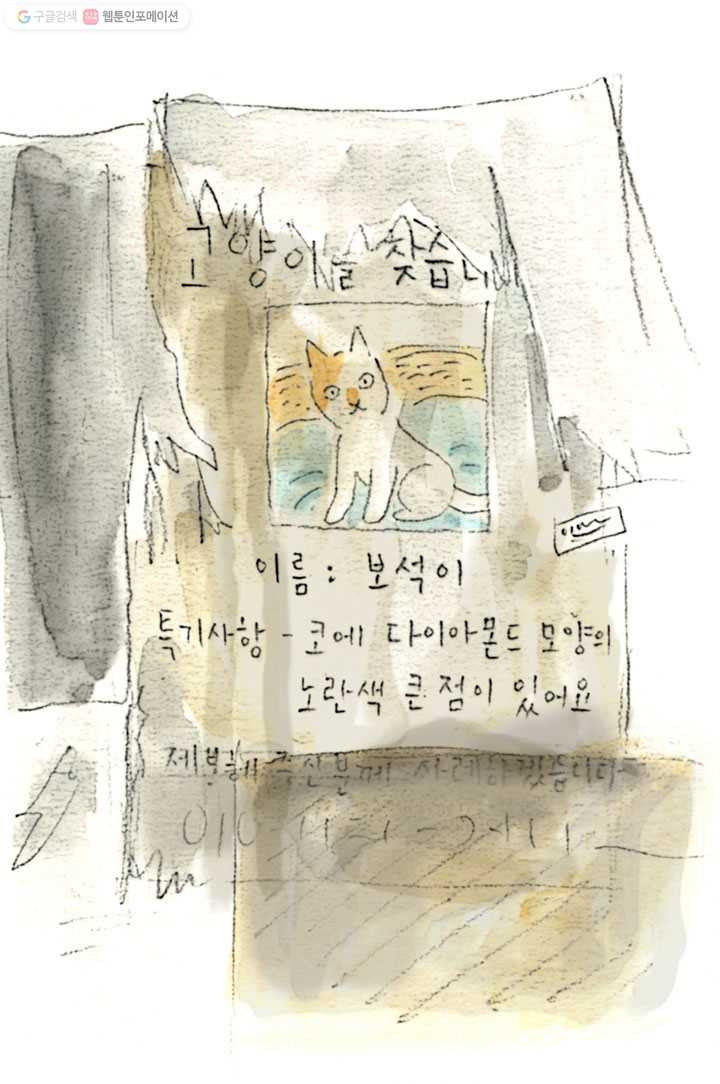 구글검색 웹툰인포메이션
고양이를 찾습니
이름 : 보석이
특기사항 - 코에 다이아몬드 모양의
노란색 큰 점이 있어요
제보해 주신분께 사례하겠습니다
010